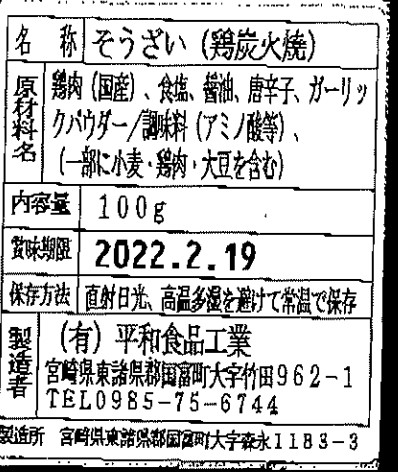 名称 そうざい(鶏炭火焼)
原材料名 鶏肉(国産)、食塩、醤油、唐辛子、ガーリッ
クパウダー/調味料(アミノ酸等)、
(一部に小麦・鶏肉・大豆を含む)
内容量 100g
賞味期限 2022.2.19
保存方法 直射日光、高温多湿を避けて常温で保存
製造者 (有)平和食品工業
宮崎県東諸県郡国富町大字竹田962-1
TEL0985-75-6744
製造所 宮崎県東諸県郡国富町大字森永1183-3